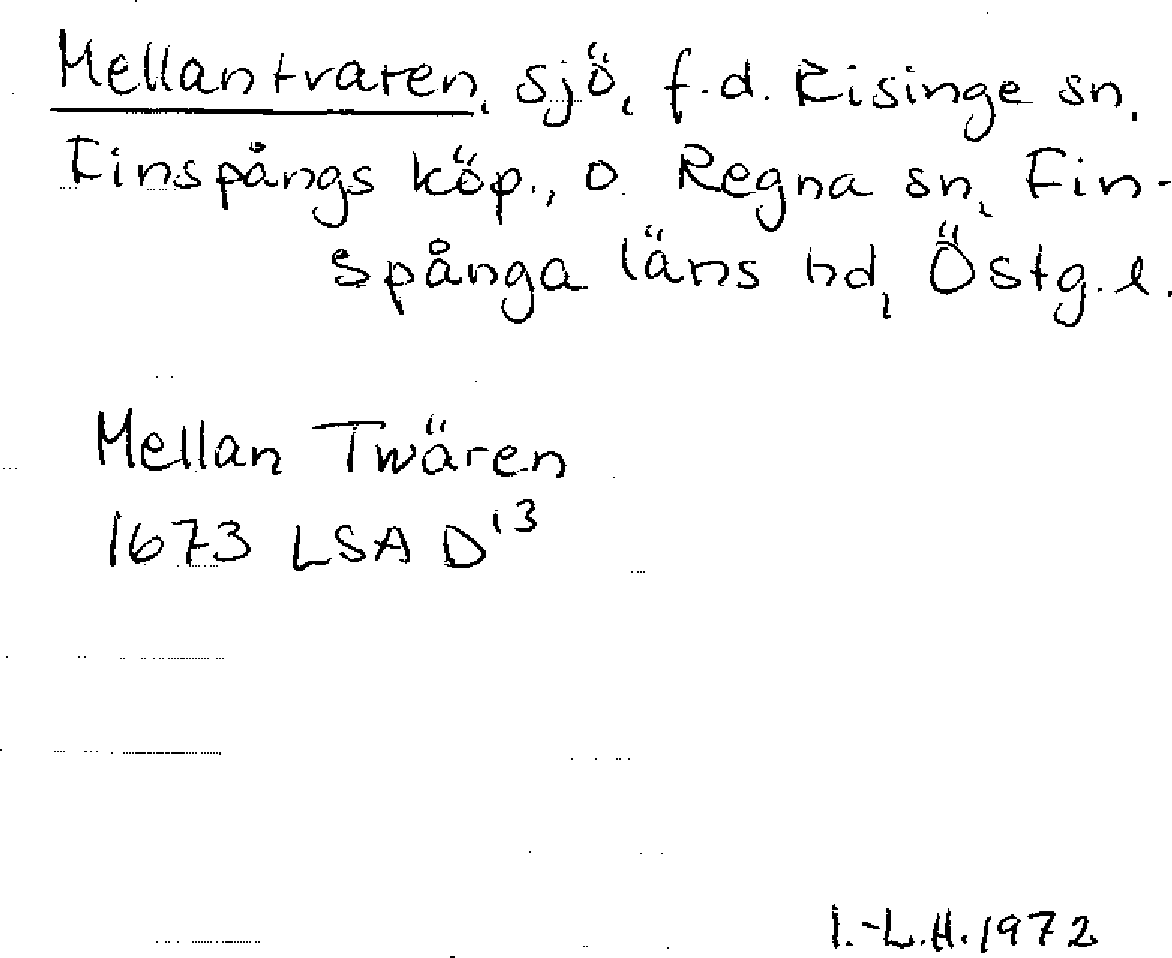 Mellantvaren, sjö, f.d. Risinge sn.
Finspångs köp., o. Regna sn, Fin-
spånga läns hd, Östg. l.
Mellan Twären
1673 LSA D13
I.-L.H. 1972